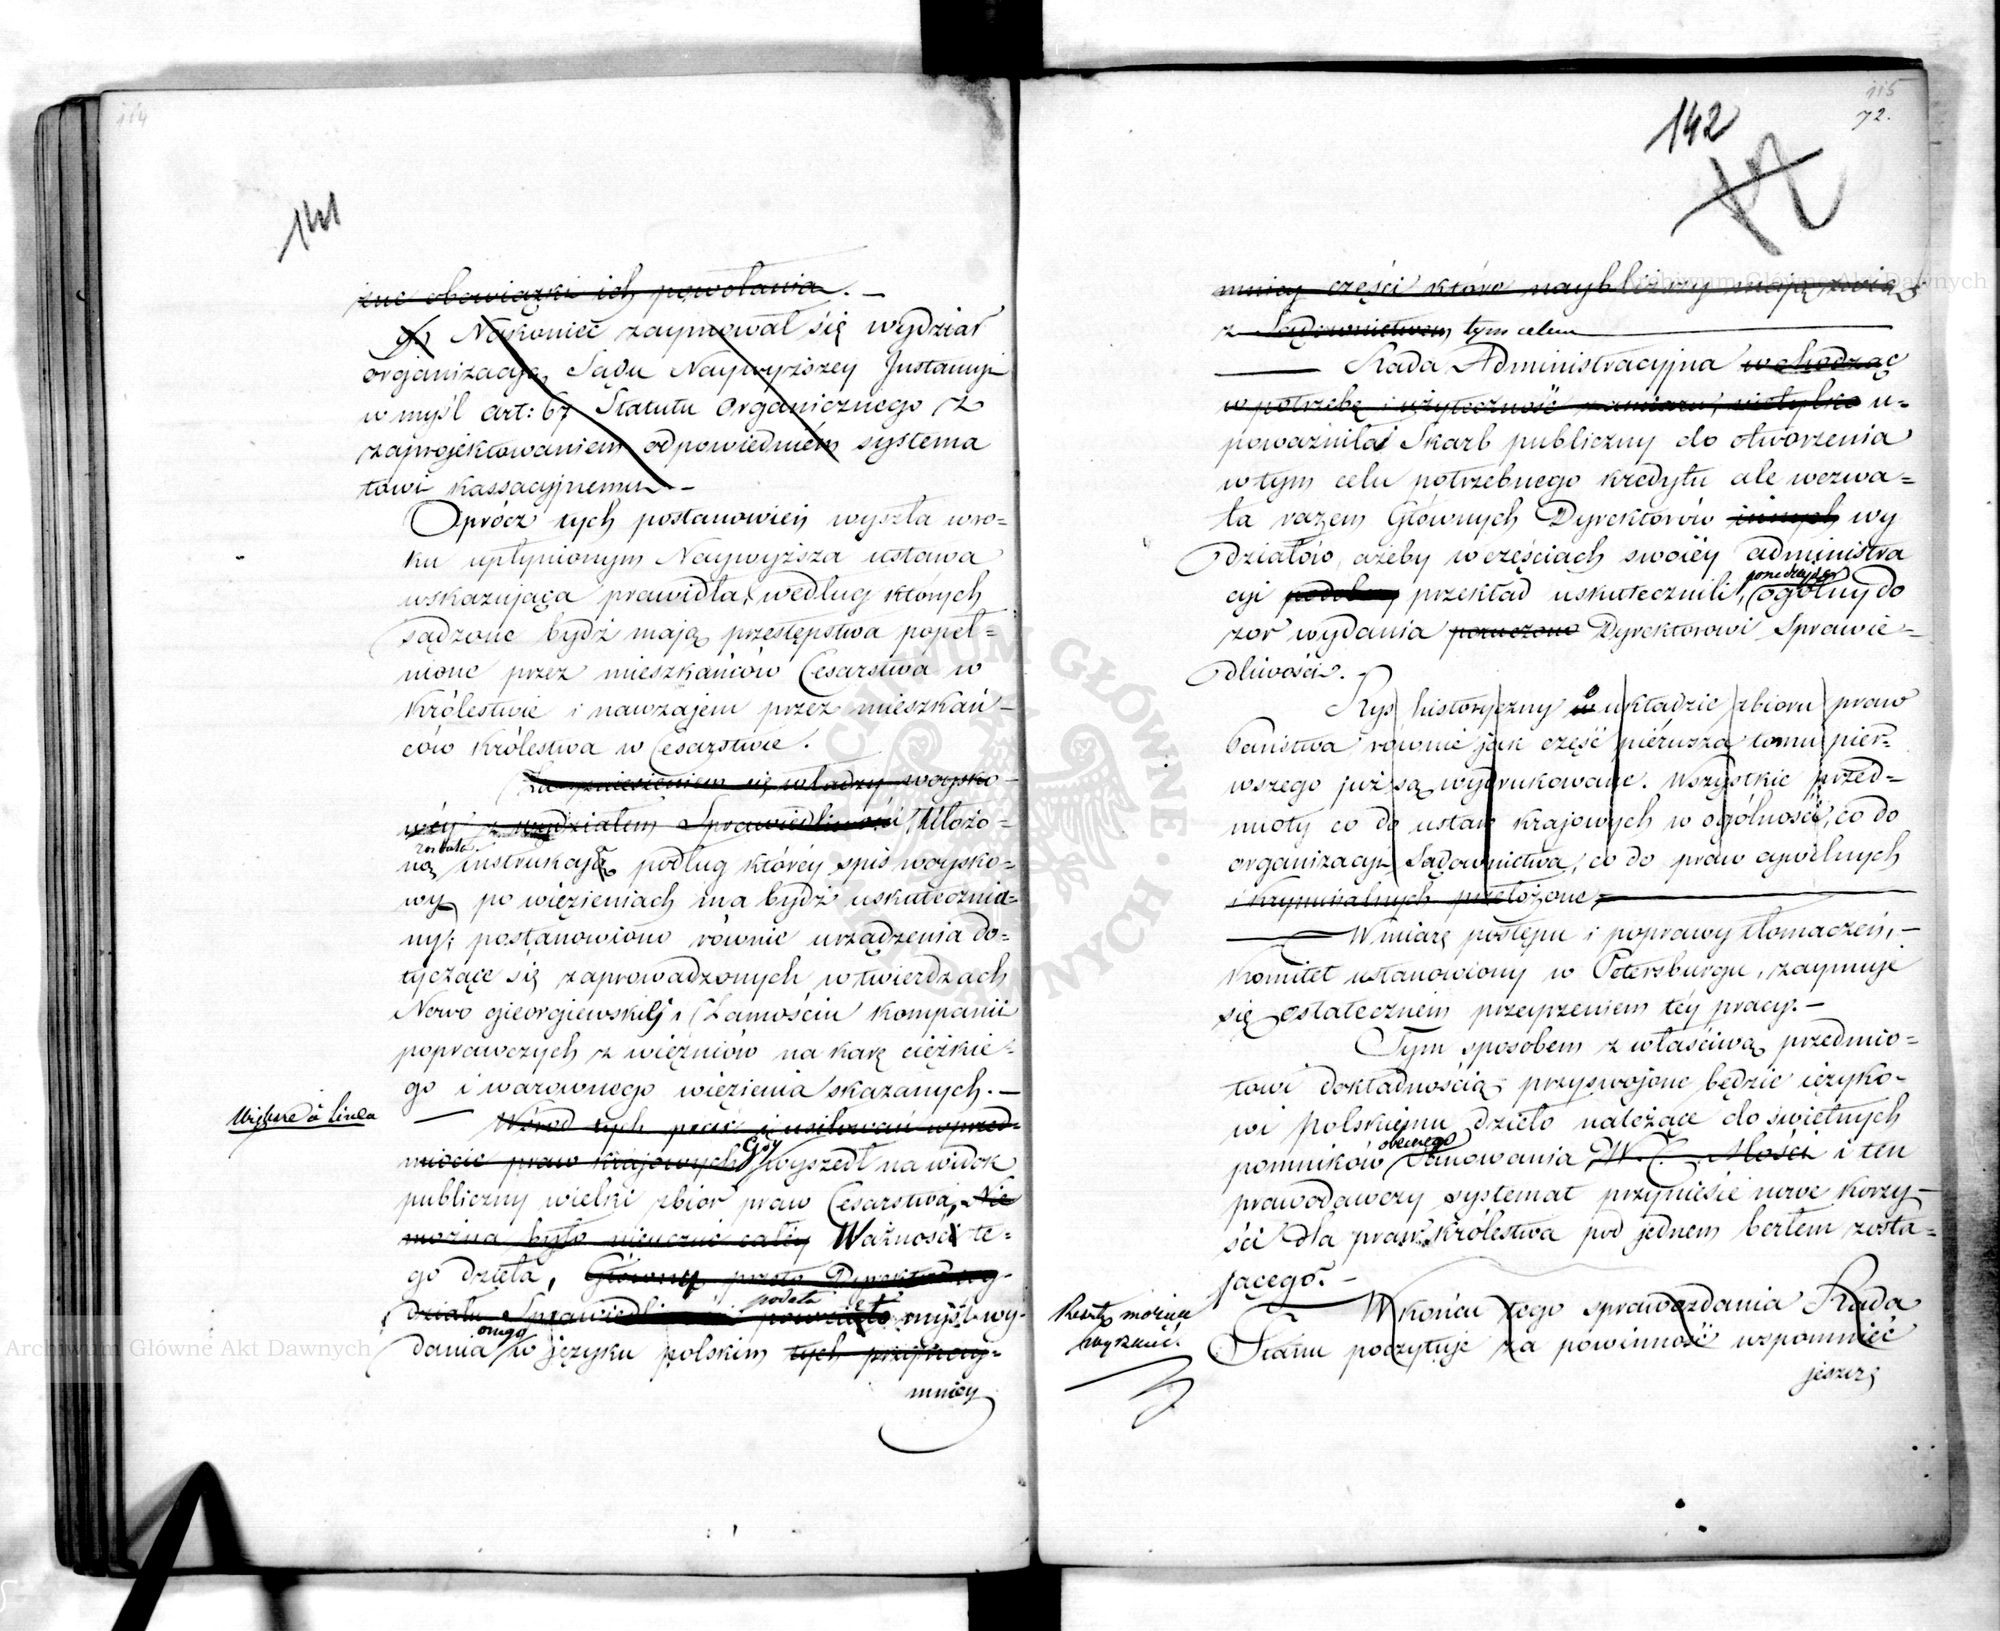 114
141
żne obowiązki ich powołania. —
9) Nakoniec zaymował się wydział
organizacyą Sądu Naywyższey Instancyi
w myśl art: 67 Statutu Organicznego z
zaprojektowaniem odpowiedniém systema
towi kassacyjnemu. —
Oprócz tych postanowień wyszła w ro=
ku upłynionym Naywyższa ustawa
wskazująca prawidła, według których
sądzone bydź mają przestępstwa popeł=
nione przez mieszkańców Cesarstwa w
Królestwie i nawzajem przez mieszkań=
ców Królestwa w Cesarstwie.
Za zniesieniem się władzy woysko=
wéy z wydziałem Sprawiedliwości, Ułożo=
została
ną instrukcyą podług któréy spis woysko=
wy po więzieniach ma bydź uskutecznio=
ny; postanowiono równie urządzenia do=
tyczące się zaprowadzonych w twierdzach
Nowo gieorgiewskiéj i Zamościu kompanii
poprawczych z więźniów na karę ciężkie=
go i warownego więzienia skazanych. —
à linea
Wśród tych prac i usiłowań w przed=
miocie praw krajowych Gdy wyszedł na widok
publiczny wielki zbiór praw Cesarstwa, Nie
można było nieuczuć całéy Ważności te=
go dzieła, Główny przeto Dyrektor wy=
działu Sprawiedliwości powziął myśl wy=
podała
dania onego w języku polskim tych przynay=
mniey
115
72.
142
72
mniey części które naybliższy mają związek
z Sądownictwem tym celem
Rada Administracyjna wchodząc
w potrzebę i użyteczność zamiaru, nietylko u=
poważniła Skarb publiczny do otworzenia
w tym celu potrzebnego kredytu ale wezwa=
ła razem Głównych Dyrektorów innych wy
działów, ażeby w częściach swoiéy administra
cyi podobny przekład uskutecznili, ogólny do
poruczyła
zór wydania poruczono Dyrektorowi Sprawie=
dliwości.
Rys historyczny o układzie zbioru praw
Państwa równie jak część piérwsza tomu pier=
wszego już są wydrukowane. Wszystkie przed=
mioty co do ustaw krajowych w ogólności, co do
organizacyi Sądownictwa, co do praw cywilnych
i kryminalnych przełożone,
W miarę postępu i poprawy tłomaczeń, —
Komitet ustanowiony w Petersburgu, zaymuje
się ostatecznem przeyrzeniem téy pracy. —
Tym sposobem z właściwą przedmio=
towi dokładnością przyswojone będzie języko=
wi polskiemu dzieło należące do świetnych
pomników obecnego Panowania W. C. Mości i ten
prawodawczy systemat przyniesie nowe korzy=
ści dla praw Królestwa pod jednem berłem zosta=
jącego. —
W końcu tego sprawozdania Rada
Stanu poczytuje za powinność wspomnieć
jeszcze
Resztę można
wyrzucić.
Archiwum Główne Akt Dawnych
Archiwum Główne Akt Dawnych
ARCHIWUM GŁÓWNE AKT DAWNYCH